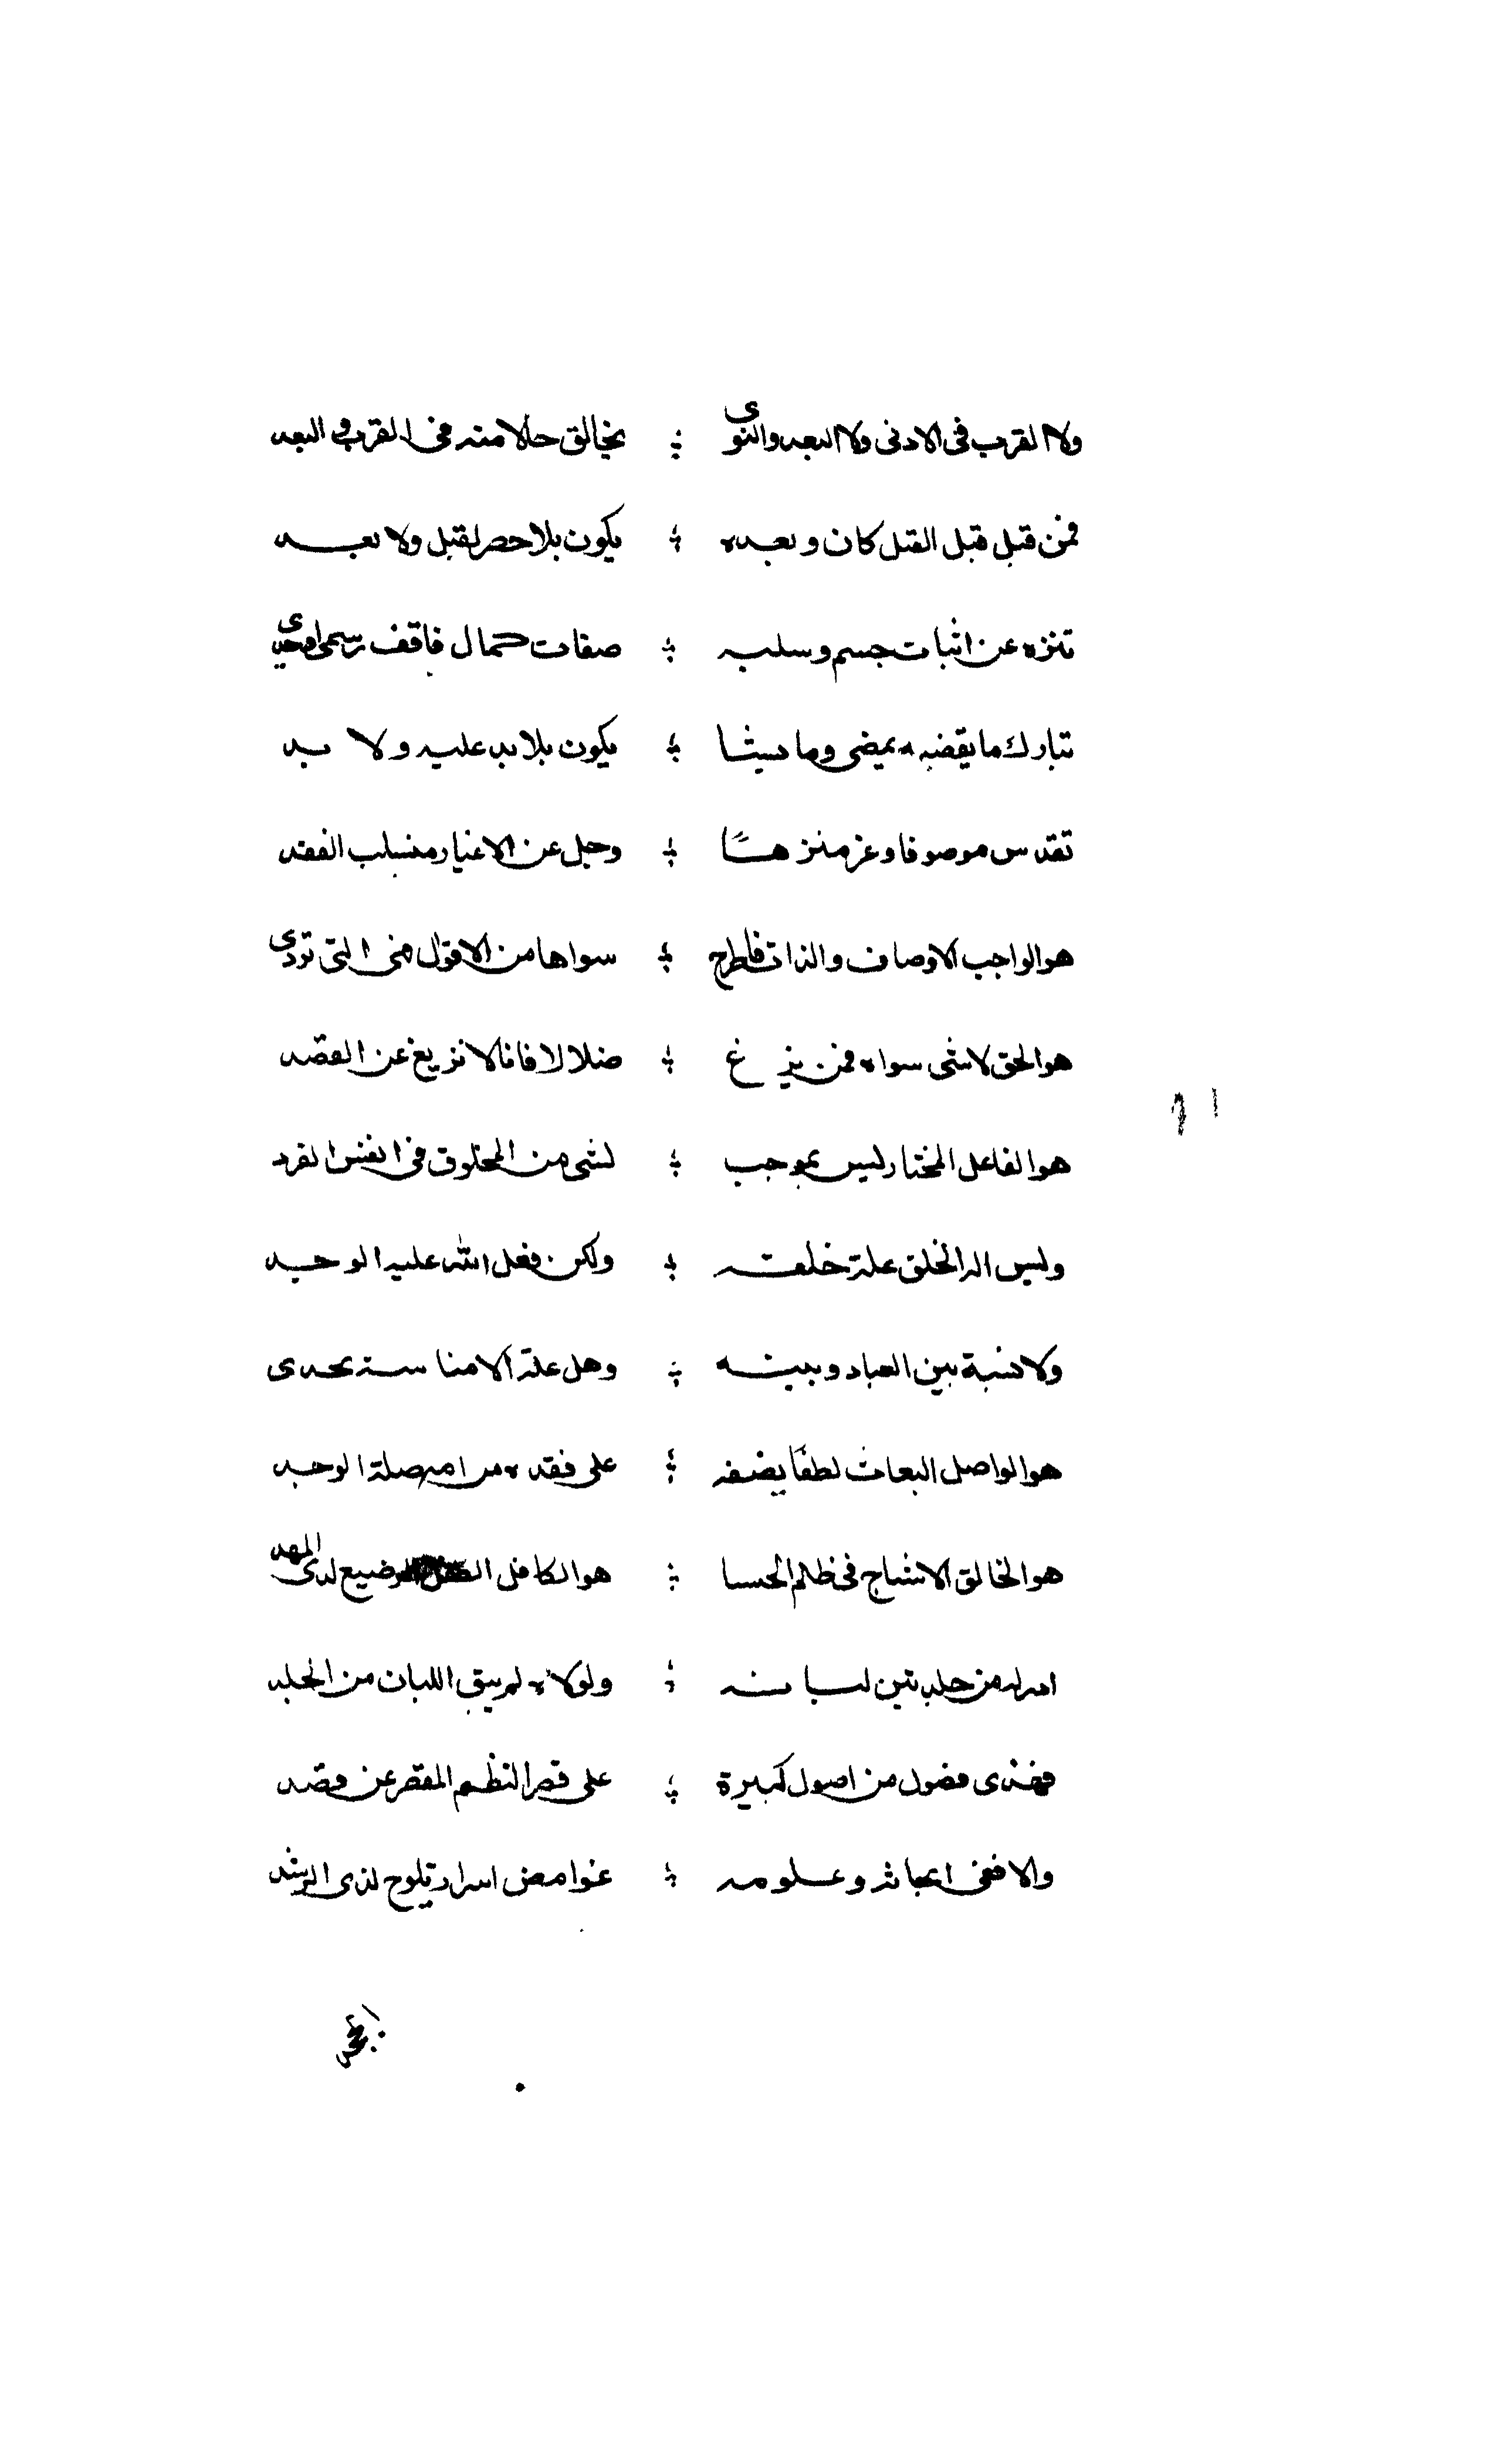 ولا القرب فى الادنى ولا البعد والنوى ؞ يخالق حالا منه فى القرب فى البعد
فمن قبل قبل القبل كان وبعده ؞ يكون بلا حصر لقبل ولا بعد
تنزه عن اثبات جسم وسلبه ؞ صفات كمال فاقف رسمى وحدى
تبارك ما يقضيه يمضى وما يشا ؞ يكون بلا بد عليه ولا بد
تقدس موصوفا وعز منزهًا ؞ وجل عن الاغيار منسلب الفقد
هو الواجب الاوصاف والذات فاطرح ؞ سواها من الاقوال فهى التى تردى
هو الحق لا شى سواه فمن يزغ ؞ ضلالا فانا لا نزيغ عن القصد
هو الفاعل المختار ليس بموجب ؞ لشى من المخلوق فى انفس الفرد
وليس اله الخلق علة خلقه ؞ ولكن فعل الله عليه الوحيد
ولا نسبة بين العباد وبينه ؞ وهل علة الا مناسبة تحدى
هو الواصل البعاث لطفًا بضعفه ؞ على فقده من امه صلة الوجد
هو الخالق الامشاج فى ظلم الحسا ؞ هو الكافل الرضيع لدى المهد
ادر له من جلدتين لبانه ؞ ولولاه لم يبق اللبان من الجلد
فهذى فصول من اصول كبيرة ؞ على قصر النظم المقصر عن قصد
والا ففى ابحاثه وعلومه ؞ غوامض اسرار تلوح لذى الرشد